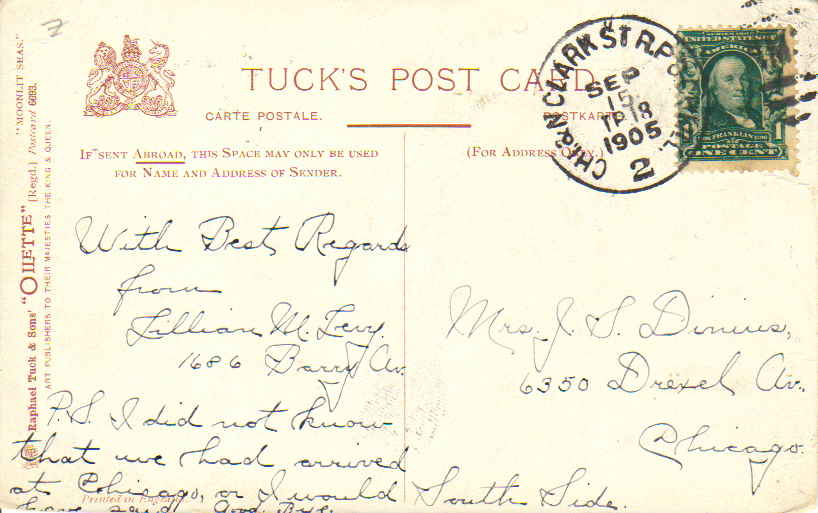 "MOONLIT SEAS."
Raphael Tuck & Sons' "OILETTE" [Regd.] Postcard 6693.
ART PUBLISHERS TO THEIR MAJESTIES THE KING & QUEEN.
TUCK'S POST CARD.
CARTE POSTALE.
POSTKARTE.
IF SENT ABROAD, THIS SPACE MAY ONLY BE USED
FOR NAME AND ADDRESS OF SENDER.
(FOR ADDRESS ONLY.)
N. CLARK ST R.P.O.
SEP
15
1905
2
FRANKLIN
POSTAGE
ONE CENT
1
With Best Regards
from
Lillian M. Levy.
1686 Barry Av.
P.S. I did not know
that we had arrived
at Chicago, or I would
have said Good Bye.
Printed in England
Mrs. J. S. Dinius,
6350 Drexel Av.,
Chicago.
South Side.